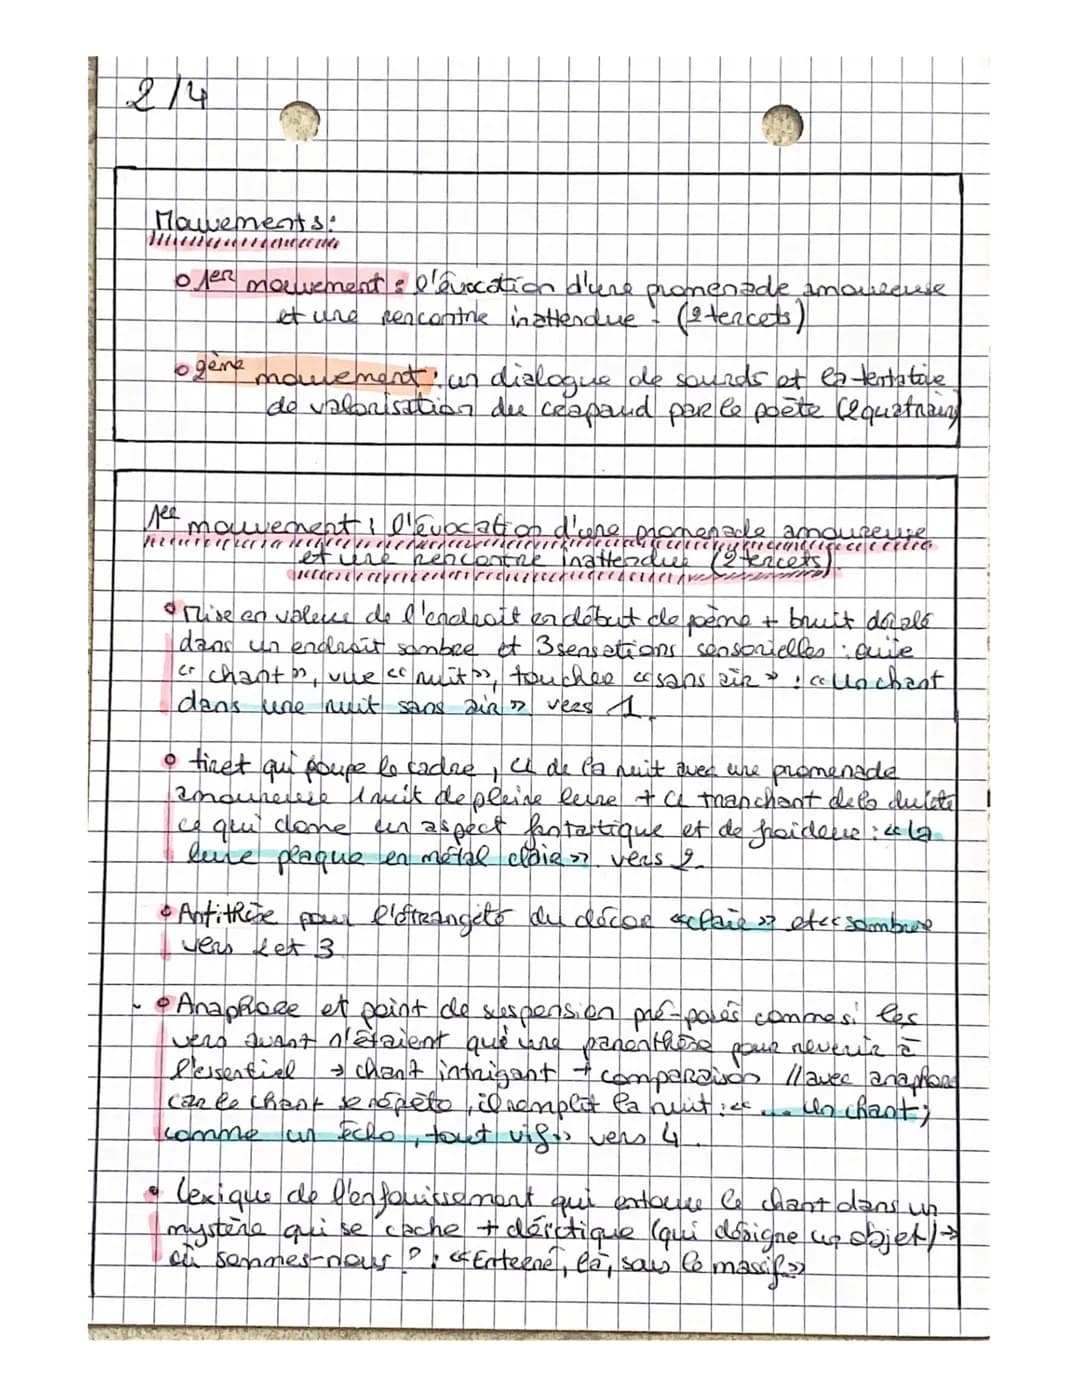 2/4
Mouvements:
1er mouvement : l'évocation d'une promenade amoureuse
et une rencontre inattendue : (2 tercets)
2ème mouvement : un dialogue de sourds et la tentative
de valorisation du crapaud par le poète (2 quatrain)
1er mouvement : l'évocation d'une promenade amoureuse
et une rencontre inattendue (2 tercets)
Mise en valeur de l'endroit en début de poème + bruit
dans un endroit sombre et 3 sensations sensorielles : ouïe
« chant », vue « nuit », toucher « sans air » : « Un chant
dans une nuit sans air » vers 1.
tiret qui coupe le cadre, CL de la nuit avec une promenade
amoureuse 1 nuit de pleine lune + CL tranchant de la dureté
ce qui donne un aspect fantastique et de froideur : « la
lune plaque en métal clair » vers 2
Antithèse pour l'étrangeté du décor « clair » et « sombre
vers 2 et 3
Anaphore et point de suspension pré-posés comme si les
vers avant n'étaient qu'une parenthèse pour revenir à
l'essentiel → chant intrigant + comparaison // avec anaphore
car le chant se répète, il remplit la nuit : « ... Un chant;
comme un écho, tout vif » vers 4.
lexique de l'enfouissement qui entoure le chant dans un
mystère qui se cache + déictique (qui désigne un objet) →
où sommes-nous ? : « Enterré, là, sous le massif »